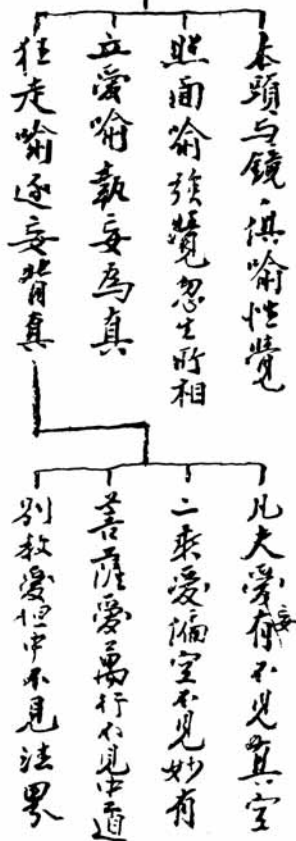 本頭与鏡，俱喻性覺
照面喻強覺忽生所相
立愛喻執妄為真
狂走喻逐妄背真
凡夫愛妄有不見真空
二乘愛偏空不見妙有
菩薩愛萬行不見中道
別教愛但中不見法界